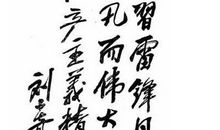 習雷鋒同
凡而偉大
産主義精
刘少奇